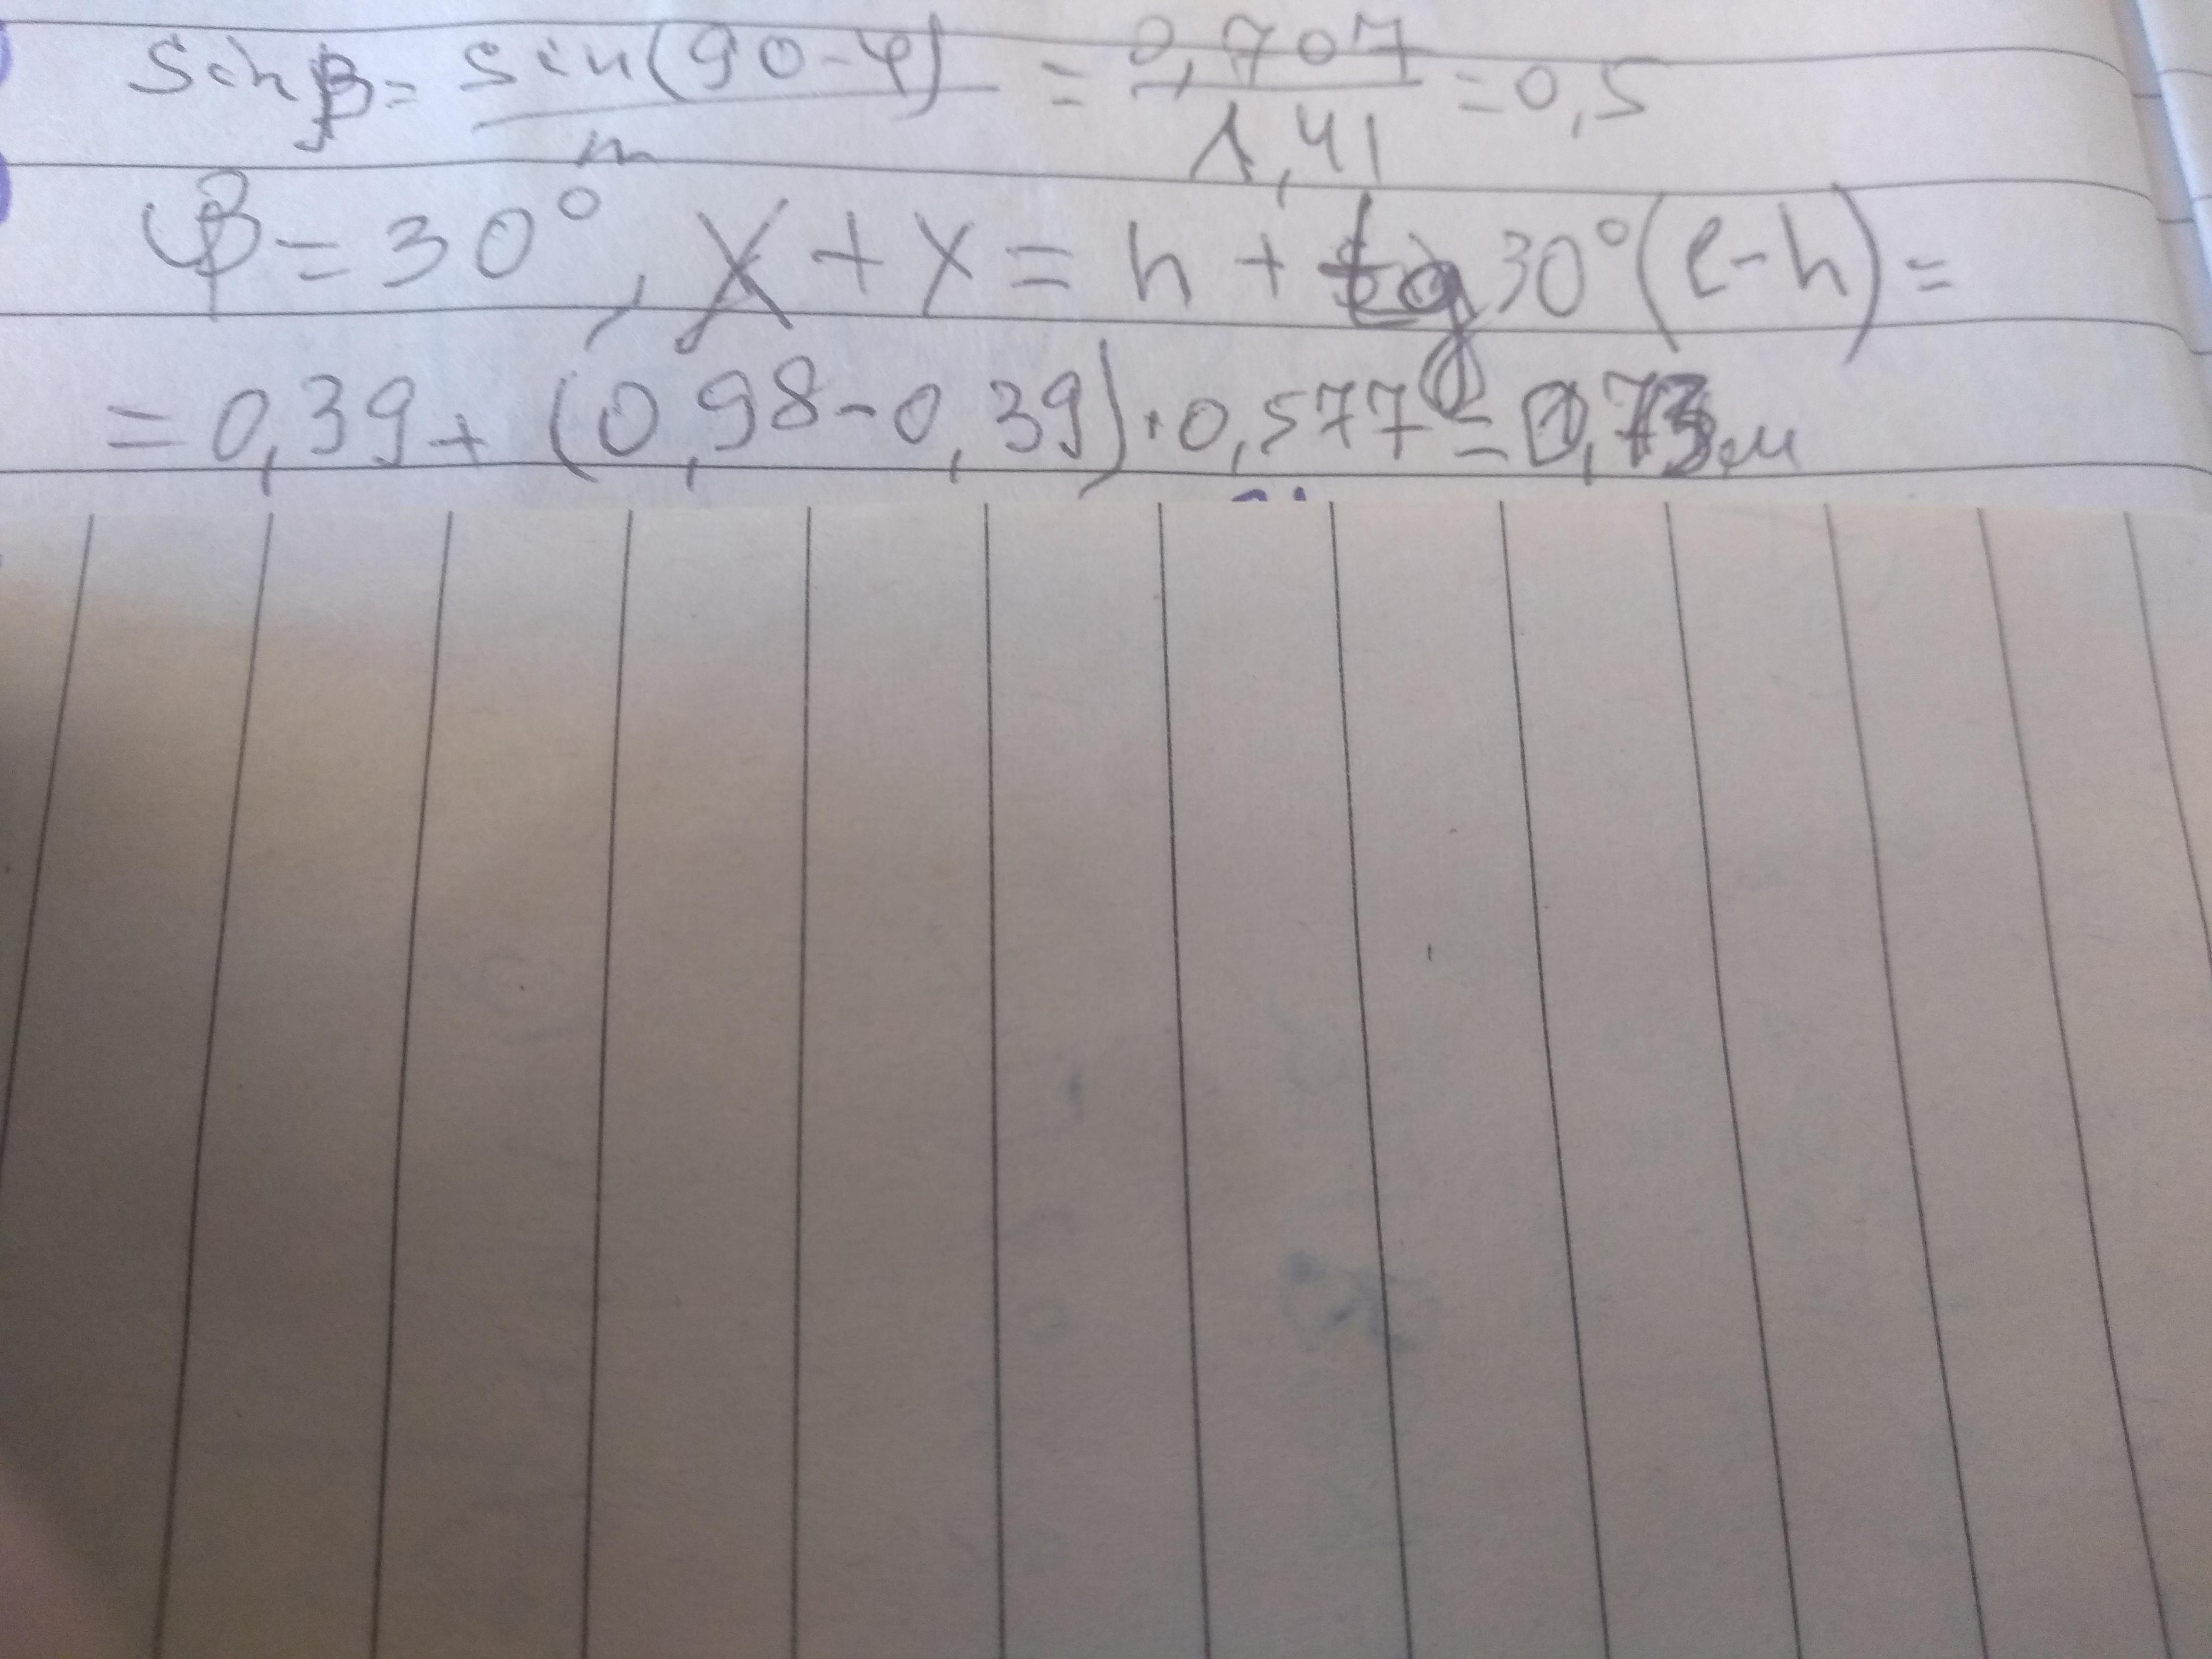 sin β = sin(90-φ)/n = 0,707/1,41 = 0,5
β = 30°, X + Y = h + tg 30° (l - h) =
= 0,39 + (0,98 - 0,39) · 0,577 = 0,73 м